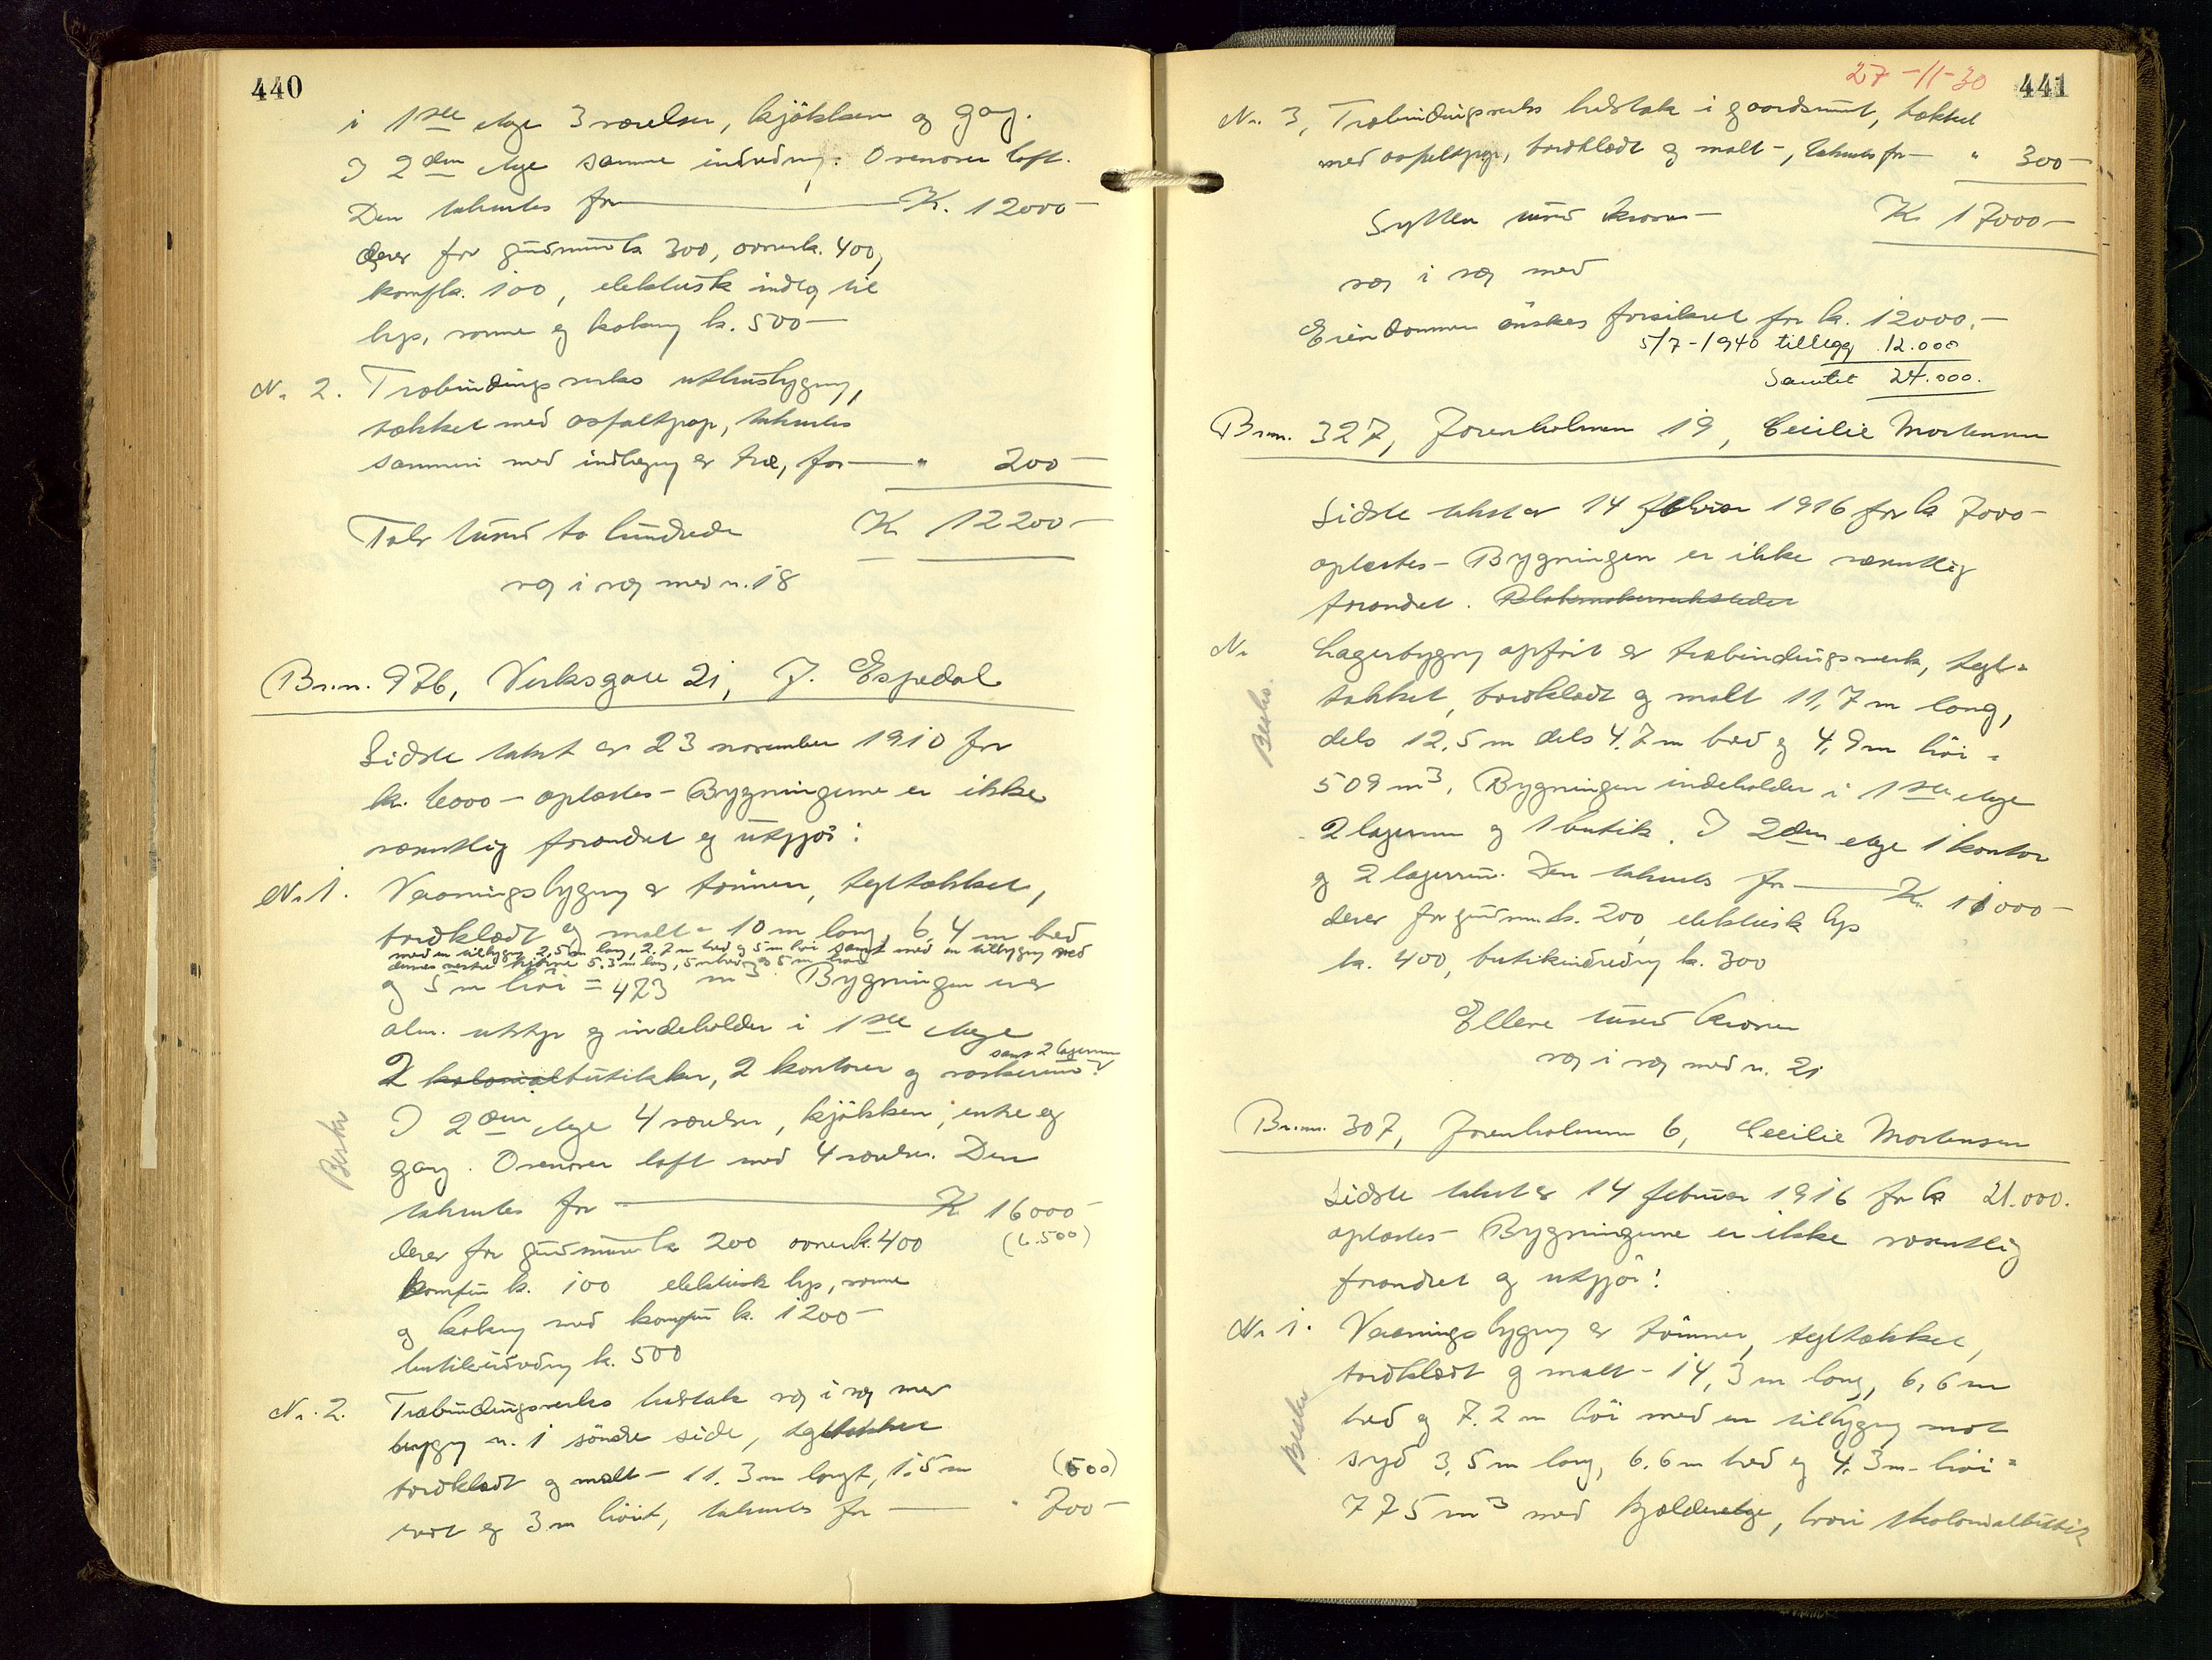 440
i 1ste etage 3 værelser, kjökken og gang.
I 2den etage samme indredning. Ovenover loft.
Den takseres for K. 12000-
derav for grundmur k. 300, ovner k. 400,
komfyr k. 100, elektrisk indlæg til
lys, varme og kokning k. 500-
Nr. 2. Træbindingsverks uthusbygning,
tækket med asfaltpap, takseres
sammen med indhegning av træ, for " 200-
Tolv tusind to hundrede K 12200-
væg i væg med nr. 18
Br.nr. 976, Verksgate 21, J. Espedal
Sidste takst av 23 november 1910 for
k. 6000- oplæstes- Bygningerne er ikke
væsentlig forandret og utgjör:
Nr 1. Vaaningsbygning av tömmer, tegltækket,
bordklædt og malt- 10 m lang, 6,4 m bred
med en tilbygning 2,5 m lang, 2,2 m bred og 5 m höi samt med en tilbygning ved
dennes vestre hjörne 5.3 m lang, 5 m bred og 5 m höi
og 5 m höi = 473 m3. Bygningen har
alm. utstyr og indeholder i 1ste etage
samt 2 lagerrum
2 kolonialbutikker, 2 kontorer og vaskerum.
I 2den etage 4 værelser, kjökken, entre og
gang. Ovenover loft med 4 værelser. Den
Besku
takseres for K 16000-
derav for grundmur k 200 ovner k. 400 (6.500)
komfyr k. 100 elektrisk lys, varme
og kokning med komfyr k. 1200-
butikindredning k. 500
Nr. 2. Træbindingsverks halvtak væg i væg med
bygning nr. 1 söndre side, tegltækket
bordklædt og malt- 11.3 m langt, 1.5 m (500)
bredt og 3 m höit, takseres for " 700-
27-11-30 441
Nr. 3, Træbindingsverks halvtak i gaardsrummet, tækket
med asfaltpap, bordklædt og malt-, takseres for- " 300-
Sytten tusind kroner- K 17000-
væg i væg med
Eiendommen önskes forsikret for k. 12000.-
5/7-1940 tillegg 12.000
Samlet 24.000.
Br.nr. 327, Jorenholmen 19, Cecilie Mortensen
Sidste takst av 14 februar 1916 for k 7000-
oplæstes- Bygningen er ikke væsentlig
forandret. Blokmakerverksteder
Nr Lagerbygning opfört av træbindingsverk, tegl-
tækket, bordklædt og malt 11,7 m lang,
Besku.
dels 12,5 m dels 4.7 m bred og 4,9 m höi =
509 m3. Bygningen indeholder i 1ste etage
2 lagerrum og 1 butik. I 2den etage 1 kontor
og 2 lagerrum. Den takseres for K. 11000-
derav for grundmur k. 200, elektrisk lys
k. 400, butikindredning k. 300
Elleve tusind kroner
væg i væg med nr. 21
Br.nr. 307, Jorenholmen 6, Cecilie Mortensen
Sidste takst av 14 februar 1916 for k 21.000.
oplæstes- Bygningerne er ikke væsentlig
forandret og utgjör:
Nr 1. Vaaningsbygning av tömmer, tegltækket,
bordklædt og malt- 14,3 m lang, 6,6 m
Besku
bred og 7.2 m höi med en tilbygning mot
syd 3,5 m lang, 6.6 m bred og 4,3 m höi =
775 m3 med kjælderetage, hvori 1 kolonialbutik